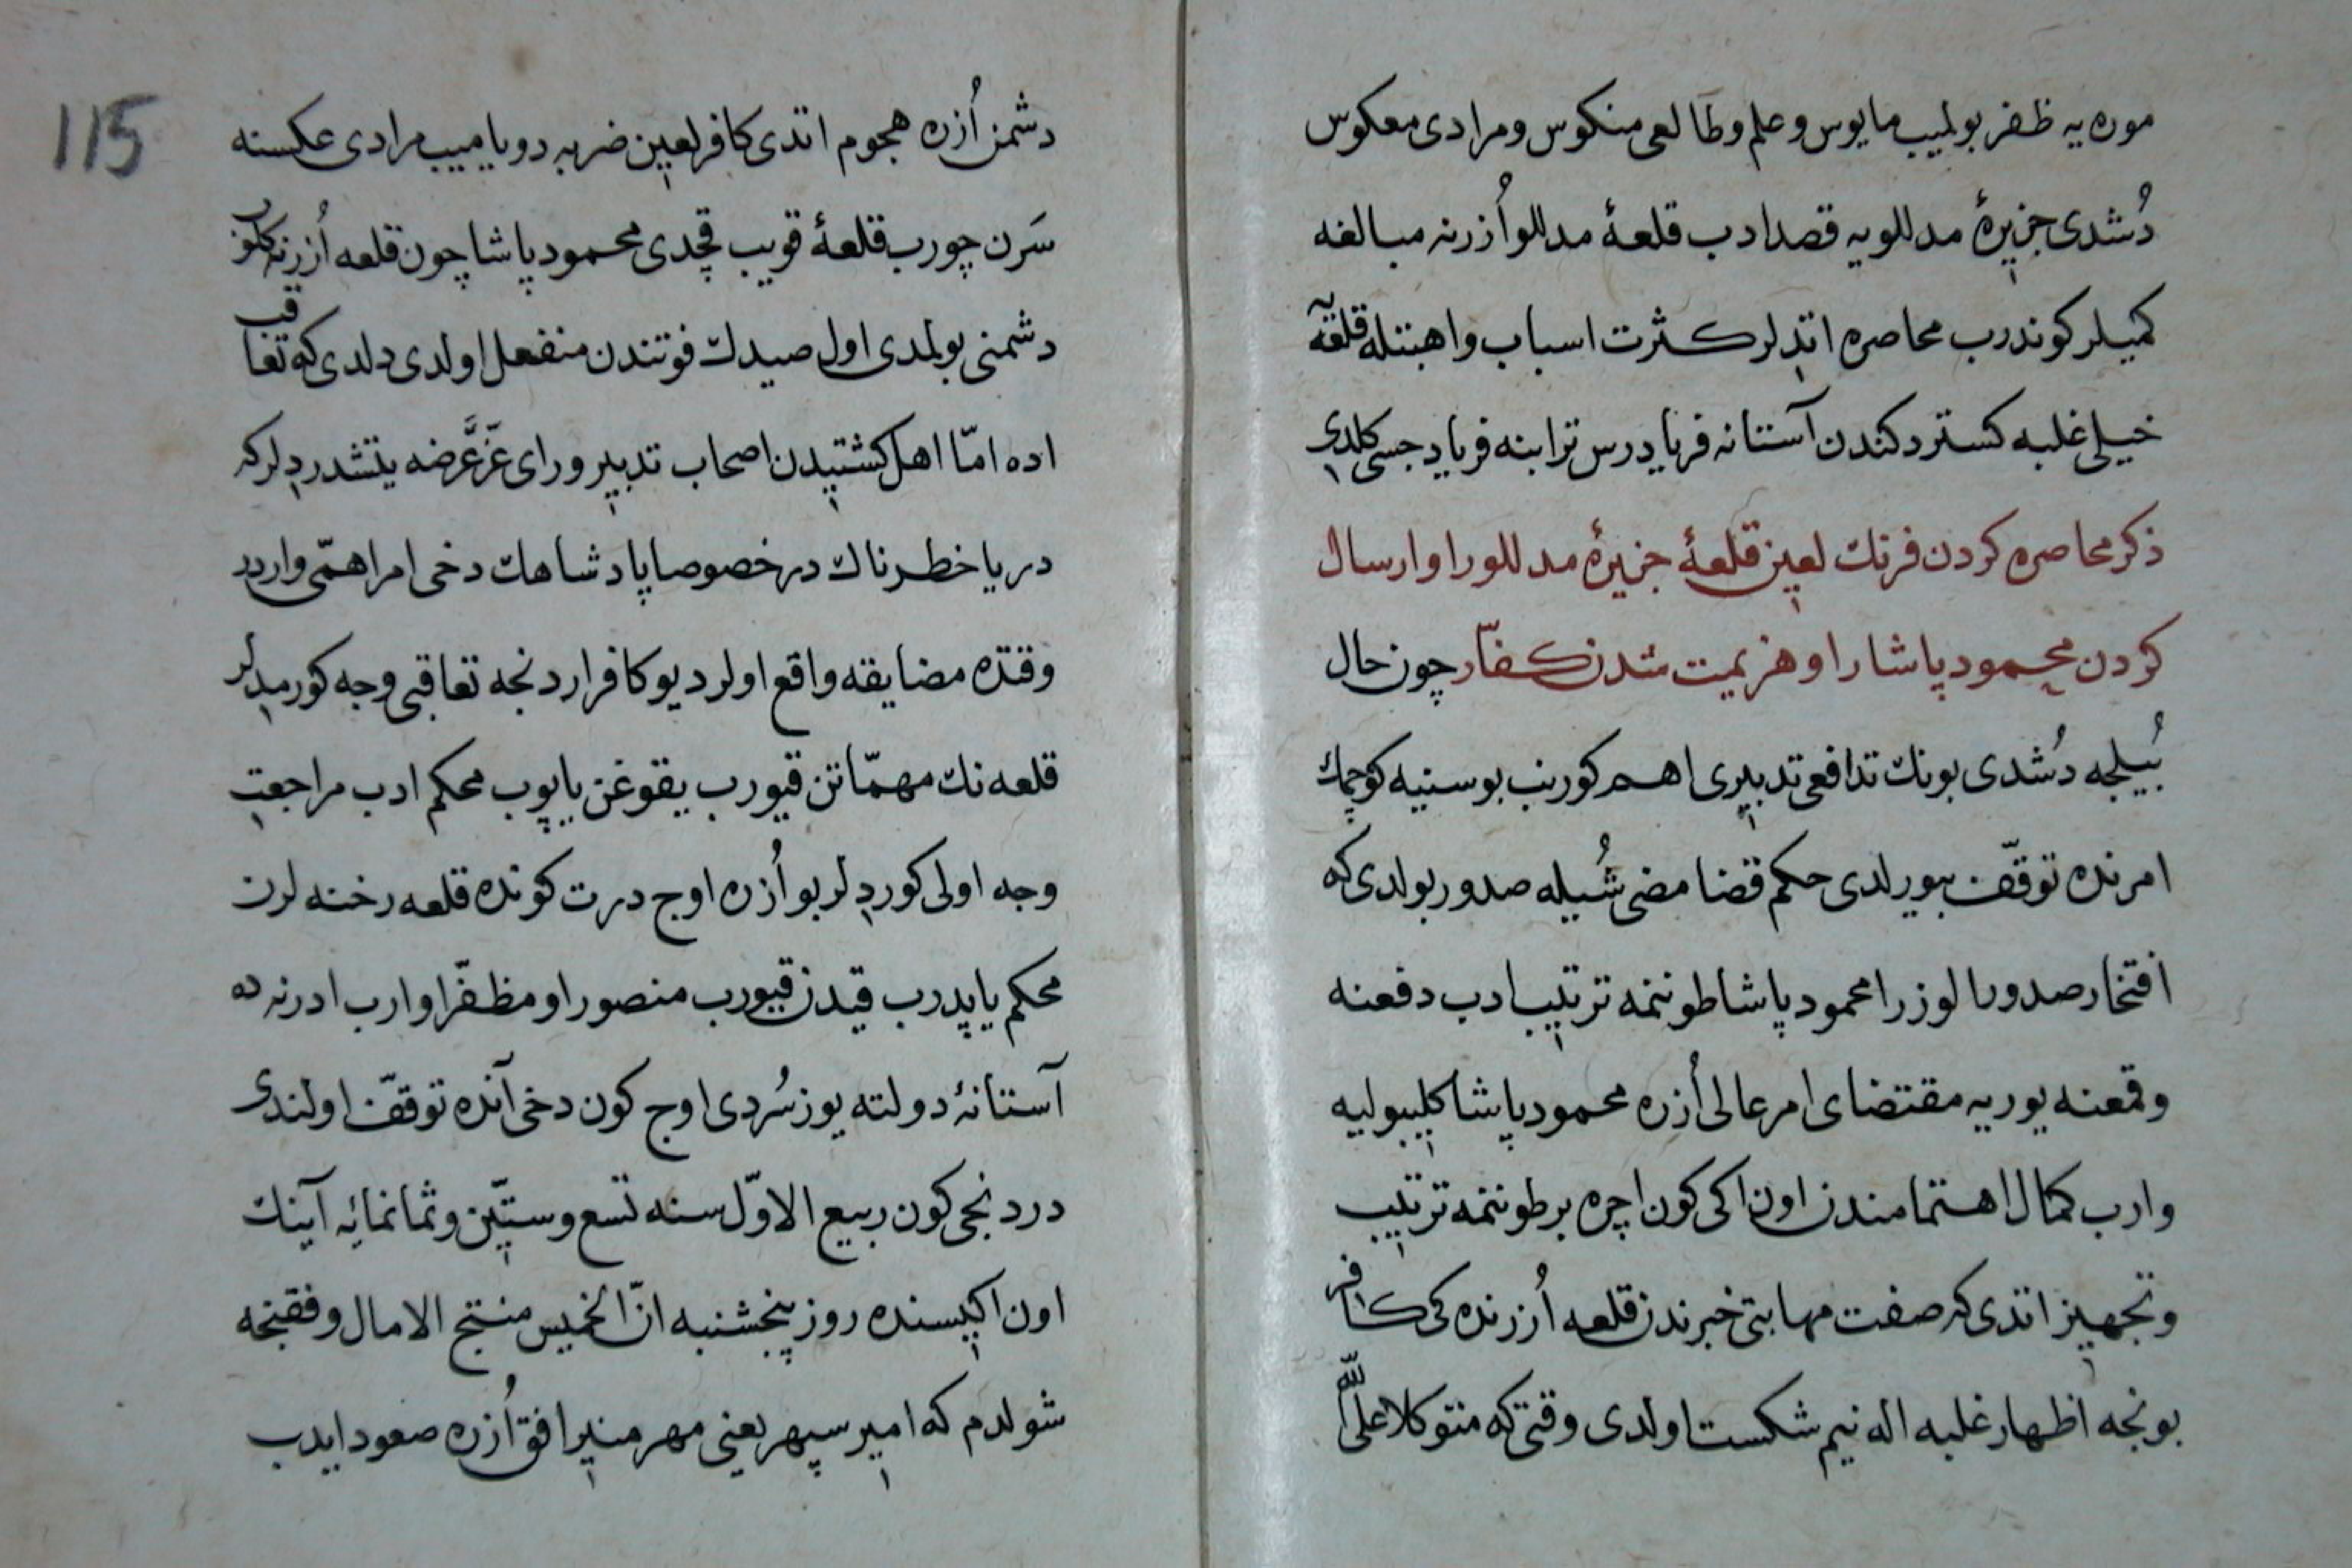 موره یه ظفر بولمیب مایوس و علم وطالعی منکوس و مرادی معکوس
دُشدی جزیرهٔ مدللویه قصد ادب قلعهٔ مدللو اُزرنه مبالغه
کمیلر کوندرب محاصره اتدلر کثرت اسباب و اهبتله قلعه
خیلی غلبه کستردکندن آستانه فریادرس ترابنه فریادجسی کلدی
ذکر محاصره کردن فرنك لعین قلعهٔ جزیرهٔ مدللورا و ارسال
کردن محمود پاشا را و هزیمت شدن کفّار چون حال
بُیلجه دُشدی بونك تدافعی تدبیری اهم کورینب بوسنیه کوچمك
امرنده توقّف بیورلدی حکم قضا مضی شُیله صدور بولدی که
افتخار صدور الوزرا محمود پاشا طوننمه ترتیب ادب دفعنه
و قمعنه یوریه مقتضای امر عالی اُزره محمود پاشا کلیبولیه
وارب کمال اهتمامندن اون اکی کون اچره بر طوننمه ترتیب
و تجهیز اتدی که صفت مهابتی خبرندن قلعه اُزرنده کی کافر
بونجه اظهار غلبه اله نیم شکست اولدی وقتی که متوکلا علی اللّه
115
دشمن اُزره هجوم اتدی کافر لعین ضربه دویامیب مرادی عکسنه
سَرن چورب قلعهٔ قویب قچدی محمود پاشا چون قلعه اُزرنه کلور
دشمنی بولمدی اول صیدك فوتندن منفعل اولدی دلدی که تعاقب
اده امّا اهل کشتیدن اصحاب تدبیر و رای عَزّ عَرضه یتشدردلر که
دریا خطرناك در خصوصا پادشاهك دخی امر اهمّی واردر
وقتده مضایقه واقع اولر دیو کافر اردنجه تعاقبی وجه کورمدلر
قلعه نك مهمّاتن قیورب یقوغن یاپوب محکم ادب مراجعت
وجه اولی کوردلر بو اُزره اوج درت کونده قلعه رخنه لرن
محکم یاپدرب قیدن قیورب منصورا و مظفّرا وارب ادرنه ده
آستانهٔ دولته یوز سُردی اوج کون دخی آنده توقّف اولندی
دردنجی کون ربیع الاوّل سنه تسع و ستّین و ثمانمائه آینك
اون اکیسنده روز پنجشنبه انّ الخمیس منتج الامال وفقنجه
شولدم که امیر سپهر یعنی مهر منیر افق اُزره صعود ایدب